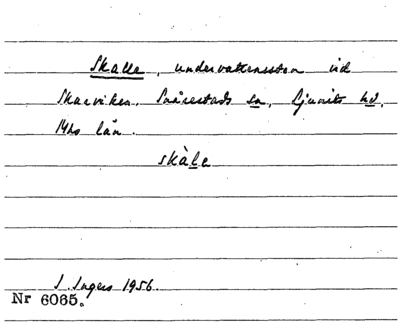 Skalle, undervattenssten vid
Skarviken. Snårestads sn, Ljunits hd,
Mhs län.
skàle
I. Ingers 1956.
Nr 6065.